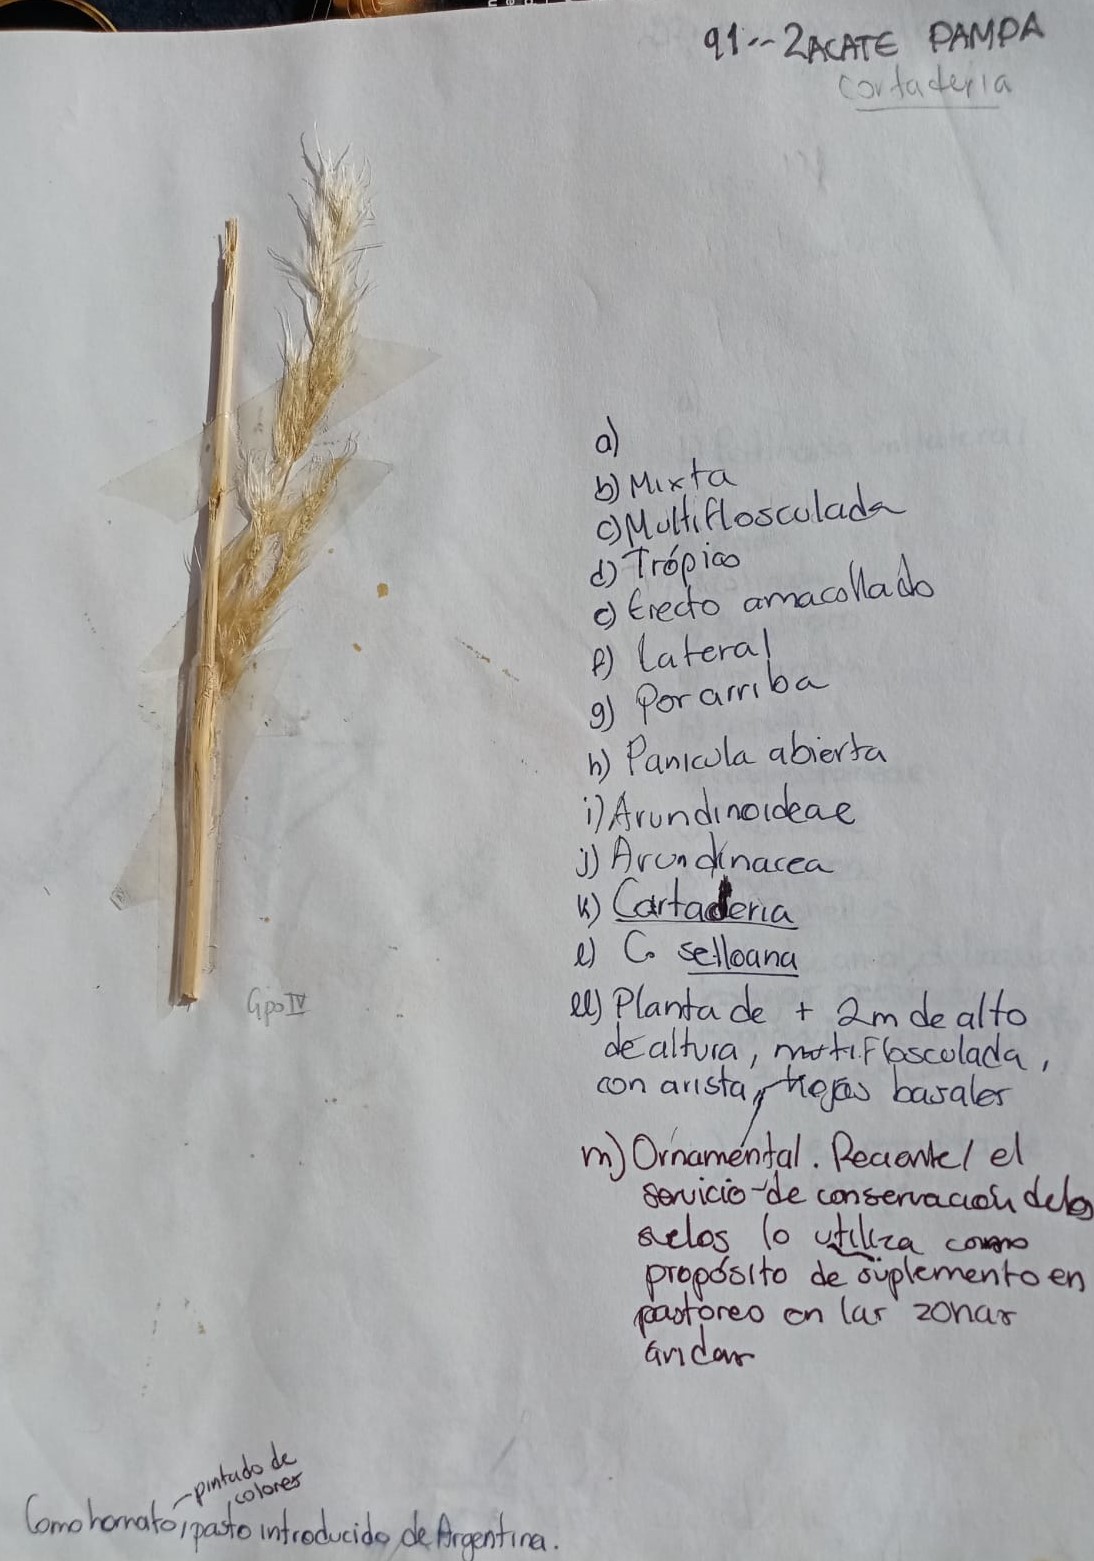 91-- ZACATE PAMPA
Cortaderia
a)
b) Mixta
c) Multiflosculada
d) Trópico
e) Erecto amacollado
f) lateral
g) Por arriba
h) Panicula abierta
i) Arundinoideae
j) Arundinacea
k) Cortaderia
l) C. selloana
ll) Planta de + 2m de alto
de altura, multiflosculada,
con arista, hojas basales
m) Ornamental. Recente/ el
servicio de conservación de los
suelos lo utiliza como
propósito de suplemento en
pastoreo en las zonas
áridas
Gpo IV
-pintado de
colores
Como hornato, pasto introducido de Argentina.